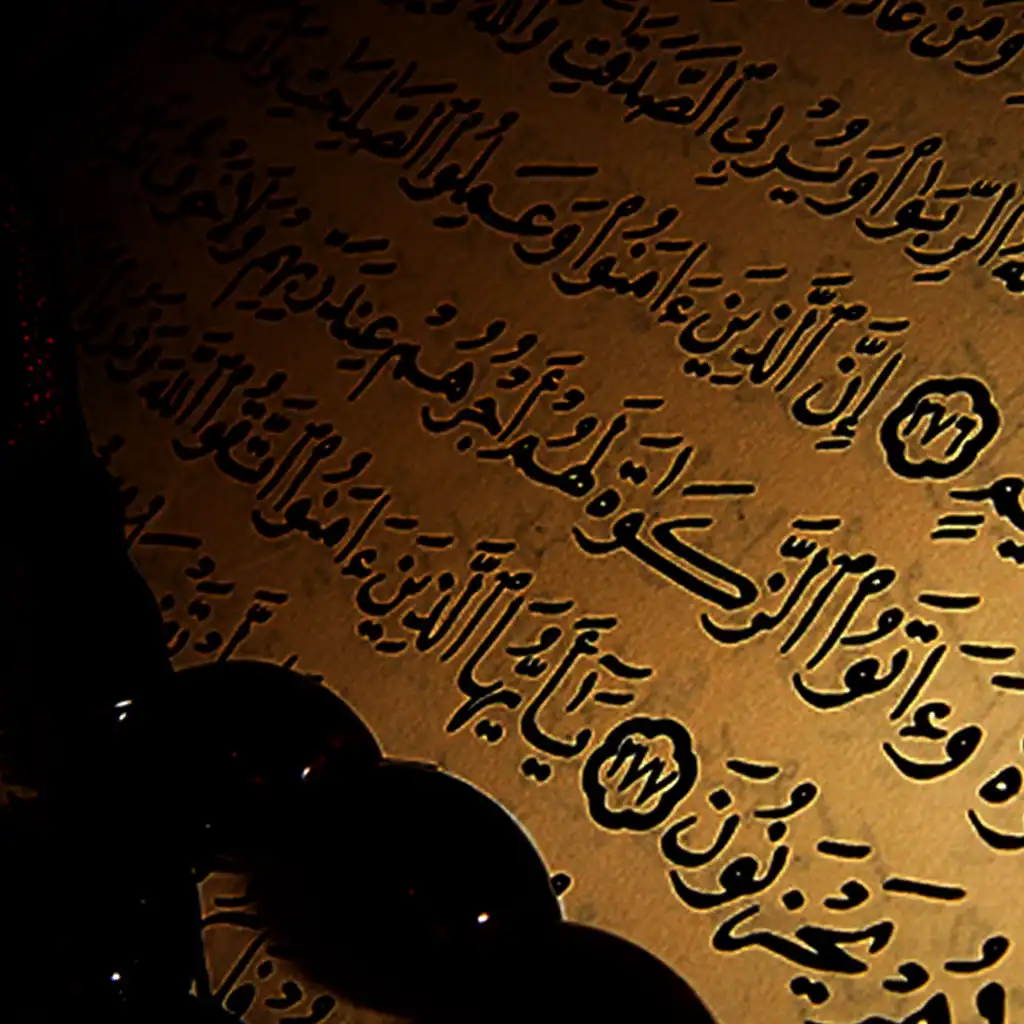 وَمَنْ عَادَ
ٱلرِّبَوٰا۟ وَيُرْبِى ٱلصَّدَقَٰتِ وَٱللَّهُ
٢٧٦ إِنَّ ٱلَّذِينَ ءَامَنُوا۟ وَعَمِلُوا۟ ٱلصَّٰلِحَٰتِ
وَءَاتَوُا۟ ٱلزَّكَوٰةَ لَهُمْ أَجْرُهُمْ عِندَ رَبِّهِمْ وَلَا خَوْفٌ
هُمْ يَحْزَنُونَ ٢٧٧ يَٰٓأَيُّهَا ٱلَّذِينَ ءَامَنُوا۟ ٱتَّقُوا۟ ٱللَّهَ وَذَرُوا۟